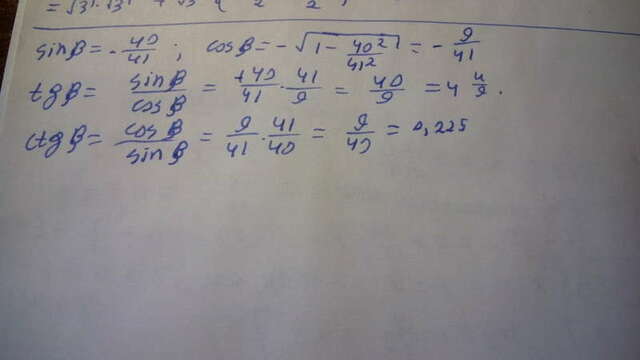 sinβ = - 40/41 ; cosβ = -√(1 - 40²/41²) = - 9/41
tgβ = sinβ/cosβ = +40/41 · 41/9 = 40/9 = 4 4/9.
ctgβ = cosβ/sinβ = 9/41 · 41/40 = 9/40 = 0,225